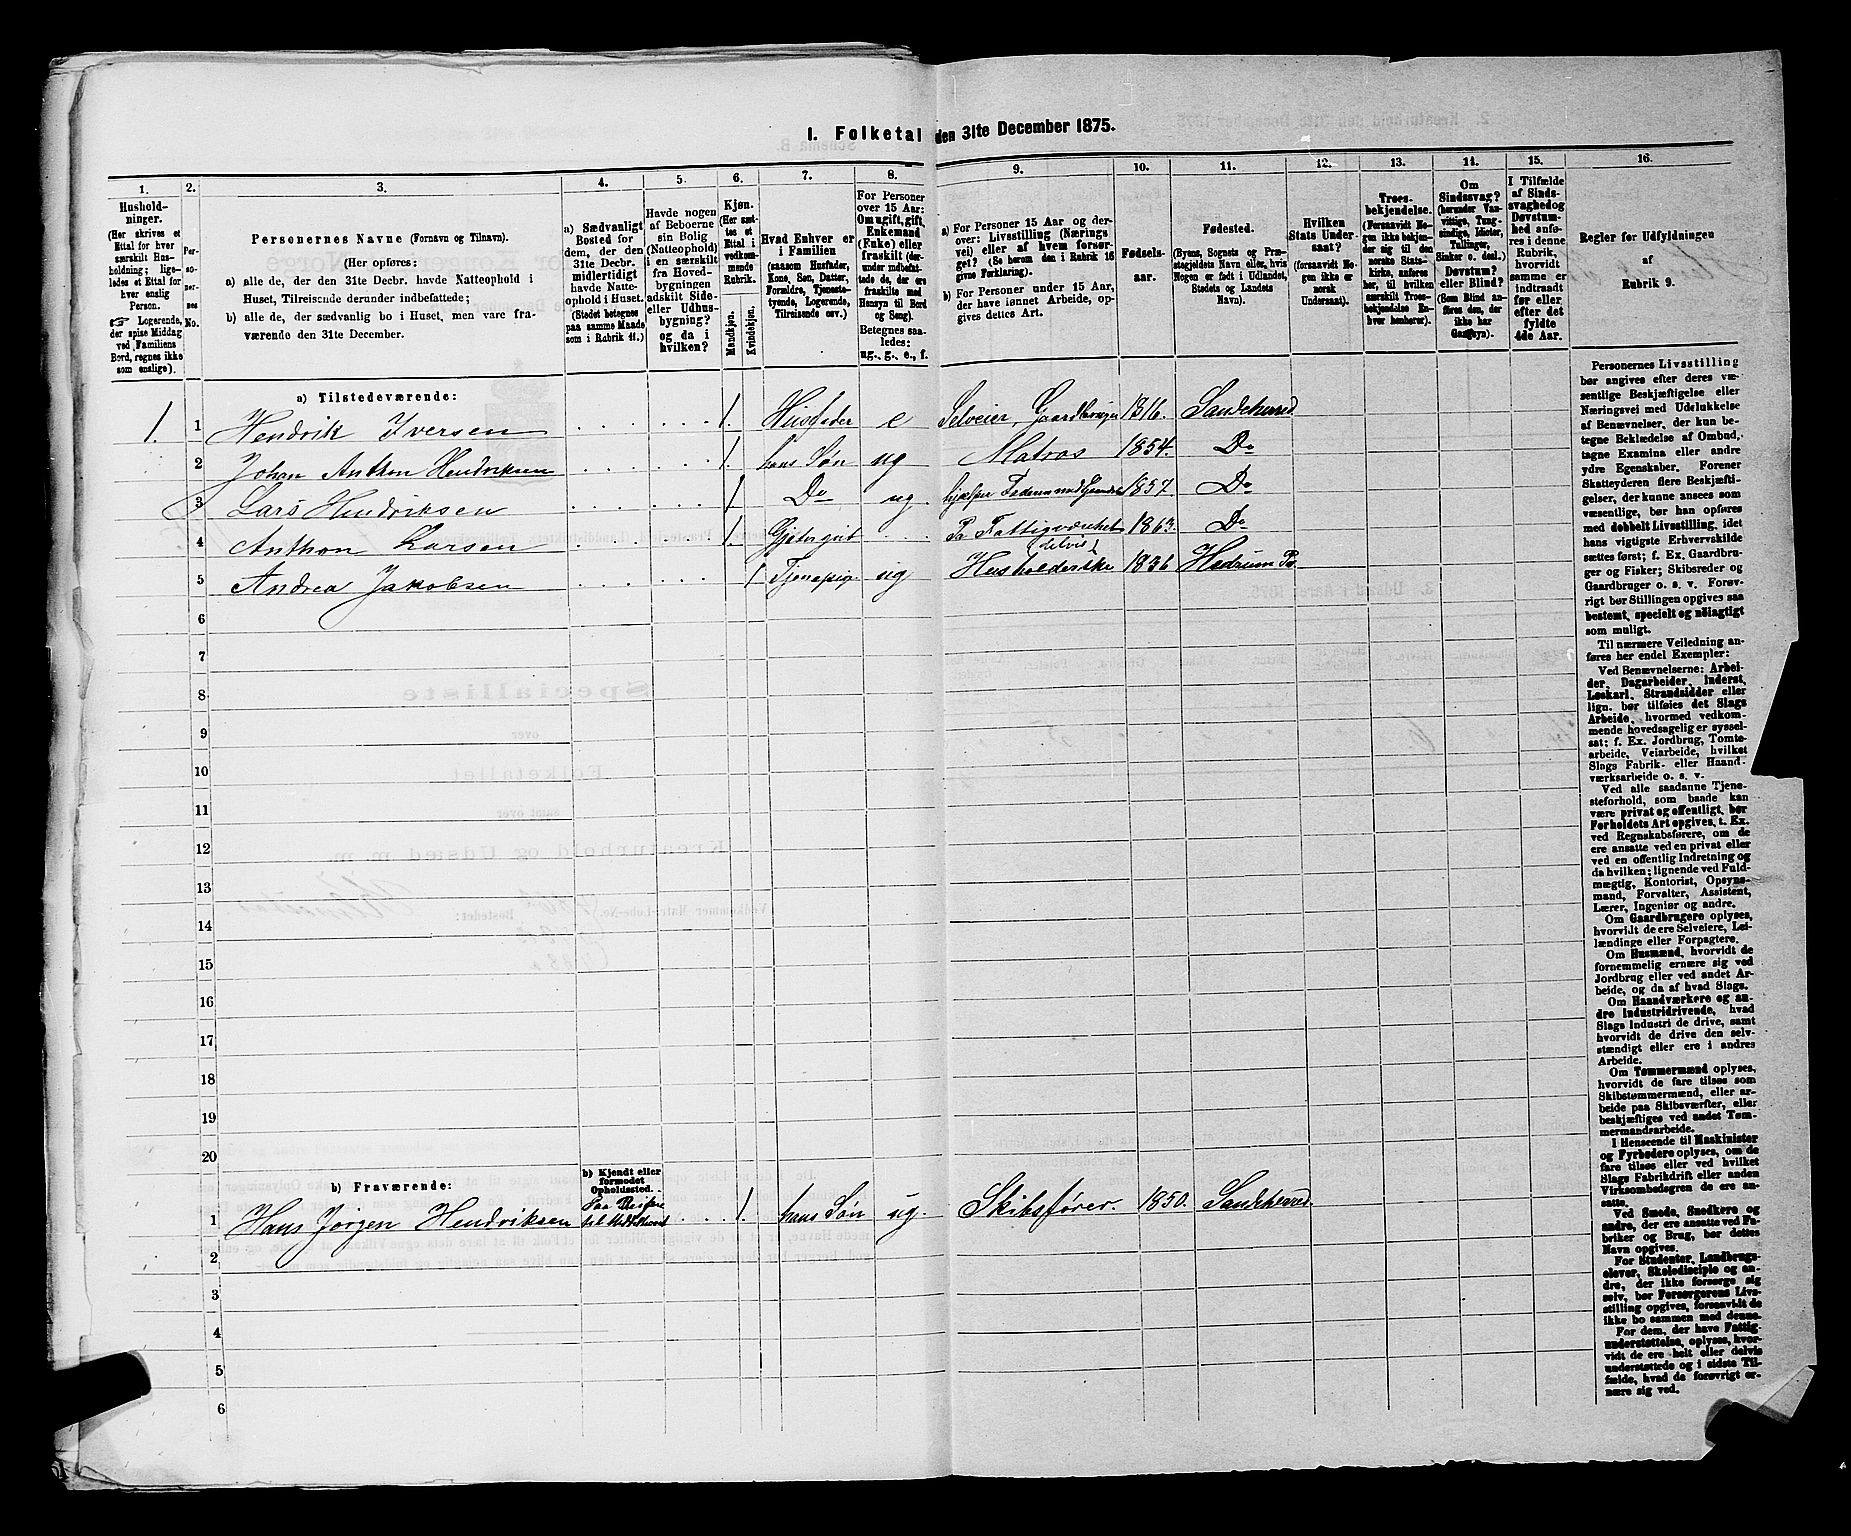 I. Folketal den 31te December 1875.
1.
2.
3.
4.
5.
6.
7.
8.
9.
10.
11.
12.
13.
14.
15.
16.
Hushold-
ninger.
(Her skrives et
Ettal for hver
særskilt Hus-
holdning; lige-
ledes et Ettal for
hver enslig
Person.
☞ Logerende,
der spise Middag
ved Familiens
Bord, regnes ikke
som enslige).
Per-
so-
ner-
nes
No.
Personernes Navne (Fornavn og Tilnavn).
(Her opføres:
a) alle de, der den 31te Decbr. havde Natteophold i
Huset, Tilreisende derunder indbefattede;
b) alle de, der sædvanlig bo i Huset, men vare fra-
værende den 31te December.
a) Sædvanligt
Bosted for
dem, der den
31te Decbr.
midlertidigt
havde Natte-
ophold i Huset.
(Stedet betegnes
paa samme Maade
som i Rubrik 11.)
Havde nogen
af Beboerne
sin Bolig
(Natteophold)
i en særskilt
fra Hoved-
bygningen
adskilt Side-
eller Udhus-
bygning?
og da i
hvilken?
Kjøn.
(Her sæt-
tes et
Ettal i
vedkom-
mende
Rubrik.
Mandkjøn.
Kvindekjøn.
Hvad Enhver er
i Familien
(saasom Husfader,
Kone, Søn, Datter,
Forældre, Tjeneste-
tyende, Logerende,
Tilreisende osv.)
For Personer
over 15 Aar:
Om ugift, gift,
Enkemand
(Enke) eller
fraskilt (der-
under indbefat-
tede de, der ere
fraskilte med
Hensyn til Bord
og Seng).
Betegnes saa-
ledes:
ug., g., e., f.
a) For Personer 15 Aar og der-
over: Livsstilling (Nærings
vei) eller af hvem forsør-
get? (Se herom den i Rubrik 16
givne Forklaring).
b) For Personer under 15 Aar,
der have lønnet Arbeide, op-
gives dettes Art.
Fødsels-
aar.
Fødested.
(Byens, Sognets og Præ-
stegjeldets Navn eller, hvis
Nogen er født i Udlandet,
Stedets og Landets
Navn).
Hvilken
Stats Under-
saat?
(forsaavidt No-
gen ikke er
norsk
Undersaat).
Troes-
bekjendelse.
(Forsaavidt No-
gen ikke bekjen-
der sig til den
norske Stats-
kirke, anføres
her, til hvilken
særskilt Troes-
bekjendelse En-
hver henhører).
Om
Sindssvag?
(herunder Van-
vittige, Tung-
sindige, Idioter,
Tullinger,
Sinker o. desl.)
Døvstum?
eller Blind?
(Som Blind an-
føres den, der
ikke har
Gangsyn).
I Tilfælde
af Sinds-
svaghed og
Døvstum-
hed anfø-
res i denne
Rubrik,
hvorvidt
samme er
indtraadt
før eller
efter det
fyldte
4de Aar.
Regler for Udfyldningen
af
Rubrik 9.
a) Tilstedeværende:
1. 1 Hendrik Iversen 1. Husfader e Selveier, Gaardbruger 1816. Sandeherred
2 Johan Anthon Hendriksen 1. hans Søn ug Matros 1854. Do
3 Lars Hendriksen 1 Do ug hjelper Faderen med Gaardsbr 1857. Do
4 Anthon Larsen 1. Gjætergut Pa Fattigvæsenet 1863. Do
(delvis)
5 Andrea Jakobsen 1 Tjenestepige ug Husholderske 1836 Hedrum Pr.
6
7
8
9
10
11
12
13
14
15
16
17
18
19
20
b) Fraværende:
b) Kjendt eller
formodet
Opholdssted.
1 Hans Jørgen Hendriksen Paa Reise til 1. hans Søn ug. Skibsfører. 1850. Sandeherred
2
3
4
5
6
Personernes Livsstilling
bør angives efter deres væ-
sentlige Beskjæftigelse eller
Næringsvei med Udelukkelse
af Benævnelser, der kun be-
tegne Beklædelse af Ombud,
tagne Examina eller andre
ydre Egenskaber. Forener
Skatteyderen flere Beskjæfti-
gelser, der kunne ansees som
væsentlige, bør han opføres
med dobbelt Livsstilling, idet
hans vigtigste Erhvervskilde
sættes først; f. Ex. Gaardbru-
ger og Fisker; Skibsreder og
Gaardbruger o. s. v. Forøv-
rigt bør Stillingen opgives saa
bestemt, specielt og nöiagtigt
som muligt.
Til nærmere Veiledning an-
føres her endel Exempler:
Ved Benævnelserne: Arbei-
der, Dagarbeider, Inderst,
Løskarl, Strandsidder eller
lign. bør tilføies det Slags
Arbeide, hvormed vedkom-
mende hovedsagelig er syssel-
sat; f. Ex. Jordbrug, Tomte-
arbeide, Veiarbeide, hvilket
Slags Fabrik- eller Haand-
værksarbeide o. s. v.
Ved alle saadanne Tjene-
steforhold, som baade kan
være privat og offentligt, bør
Forholdets Art opgives, t. Ex.
ved Regnskabsførere, om de
ere ansatte ved en privat eller
ved en offentlig Indretning og
da hvilken; lignende ved Fuld-
mægtig, Kontorist, Opsyns-
mand, Forvalter, Assistent,
Lærer, Ingeniør og andre.
Om Gaardbrugere oplyses,
hvorvidt de ere Selveiere, Lei-
lændinge eller Forpagtere.
Om Husmænd, hvorvidt de
fornemmelig ernære sig ved
Jordbrug eller ved andet Ar-
beide, og da af hvad Slags.
Om Haandværkere og an-
dre Industridrivende, hvad
Slags Industri de drive, samt
hvorvidt de drive den selv-
stændigt eller ere i andres
Arbeide.
Om Tømmermænd oplyses,
hvorvidt de fare tilsøs som
Skibstømmermænd, eller ar-
beide paa Skibsværfter, eller
beskjæftiges ved andet Tøm-
mermandsarbeide.
I Henseende til Maskinister
og Fyrbødere oplyses, om de
fare tilsøs eller ved hvilket
Slags Fabrikdrift eller anden
Virksomhedsgren de ere an-
satte.
Ved Smede, Snedkere og
andre, der ere ansatte ved Fa-
briker og Brug, bør dettes
Navn opgives.
For Studenter, Landbrugs-
elever, Skoledisciple og an-
dre, der ikke forsørge sig
selv, bør Forsørgerens Livs-
stilling opgives, forsaavidt de
ikke bo sammen med denne.
For dem, der have Fattig-
understøttelse, oplyses, hvor-
vidt de ere helt eller delvis
understøttede og i sidste Til-
fælde, hvad de forøvrigt er-
nære sig ved.